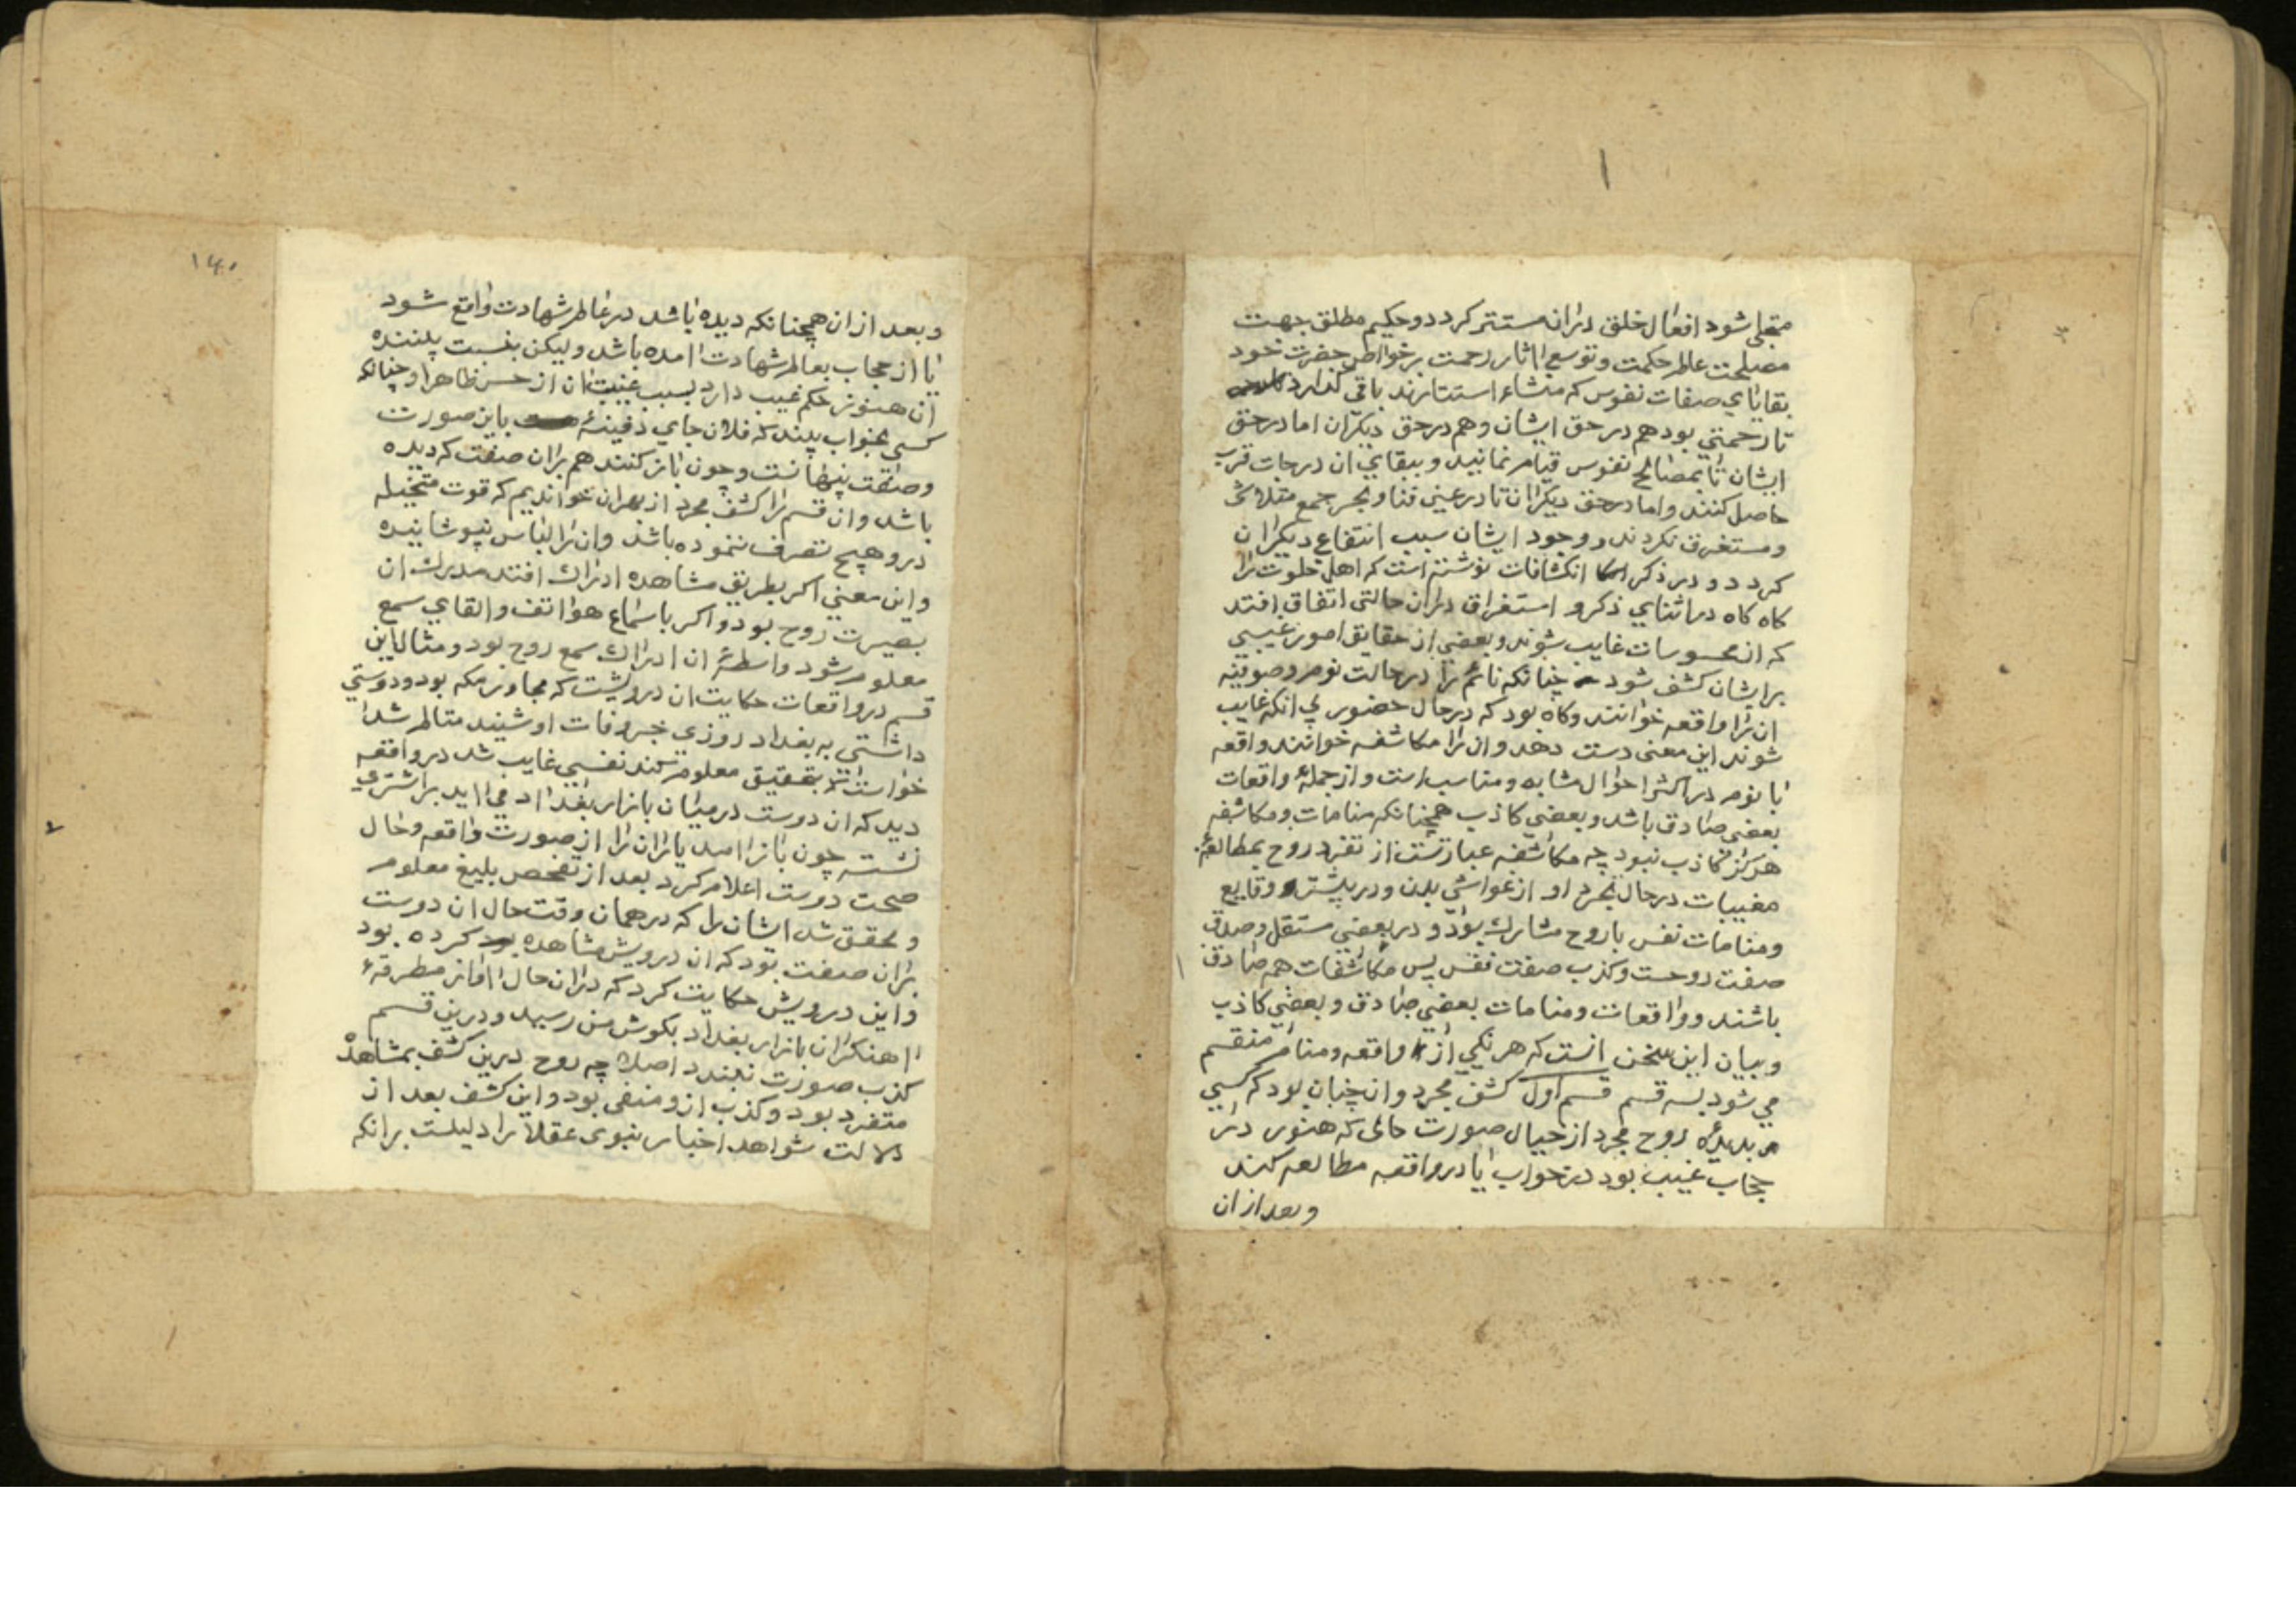 ۱
متجلی شود افعال خلق دران مستتر کردد و حکیم مطلق جهت
مصلحت عالم حکمت و توسیع اثار رحمت بر خواص حضرت خود
بقایای صفات نفوس که منشاء استتارند باقی کذارد
تا رحمتی بود هم در حق ایشان و هم در حق دیکران اما در حق
ایشان تا بمصالح نفوس قیام نمایند و ببقای ان درجات قرب
حاصل کنند و اما در حق دیکران تا در عین فنا و بحر جمع متلاشی
و مستغرق نکردند و وجود ایشان سبب انتفاع دیکران
کردد و در ذکر انکشافات نوشته است که اهل خلوت را
کاه کاه در اثنای ذکر و استغراق دران حالتی اتفاق افتد
که از محسوسات غایب شوند و بعضی از حقایق امور غیبی
بر ایشان کشف شود چنانکه نائم را در حالت نوم و صوفیه
ان را واقعه خوانند و کاه بود که در حال حضور بی انکه غایب
شوند این معنی دست دهد و ان را مکاشفه خوانند و واقعه
با نوم در اکثر احوال مشابه و مناسب است و از جملهٔ واقعات
بعضی صادق باشد و بعضی کاذب همچنانکه منامات و مکاشفه
هرکز کاذب نبود چه مکاشفه عبارتست از تفرد روح بمطالعهٔ
مغیبات در حال تجرد او از غواشی بدن و در بیشتر وقایع
و منامات نفس با روح مشارک بود و در بعضی مستقل و صدق
صفت روحست و کذب صفت نفس پس مکاشفات همه صادق
باشند و واقعات و منامات بعضی صادق و بعضی کاذب
و بیان این سخن انست که هر یکی از واقعه و منام منقسم
می شود بسه قسم قسم اول کشف مجرد و ان چنان بود که کسی
بدیدهٔ روح مجرد از خیال صورت حالی که هنوز در
حجاب غیب بود در خواب یا در واقعه مطالعه کند
و بعد از ان
۱۴۰
و بعد از ان همچنانکه دیده باشد در عالم شهادت واقع شود
یا از حجاب بعالم شهادت امده باشد ولیکن بنسبت بیننده
ان هنوز حکم غیب دارد بسبب غیبت ان از حس ظاهر او چنانکه
کسی بخواب بیند که فلان جای دفینهٔ باین صورت
و صفت پنهانست و چون باز کنند هم بران صفت که دیده
باشد و ان قسم را کشف مجرد از بهر ان خواندیم که قوت متخیله
درو هیچ تصرف ننموده باشد و ان را لباس نپوشانیده
و این معنی اکر بطریق مشاهده ادراک افتد مدرک ان
بصیرت روح بود و اکر باستماع هواتف و القای سمع
معلوم شود واسطهٔ ان ادراک سمع روح بود و مثال این
قسم در واقعات حکایت ان درویشت که مجاور مکه بود و دوستی
داشتی به بغداد روزی خبر وفات او شنید متالم شد
خواست تا بتحقیق معلوم کند نفسی غایب شد در واقعه
دید که ان دوست در میان بازار بغداد می اید بر اشتری
نشسته چون باز امد یاران را از صورت واقعه و حال
صحت دوست اعلام کرد بعد از تفحص بلیغ معلوم
و محقق شد ایشان را که در همان وقت حال ان دوست
بران صفت بود که ان درویش مشاهده کرده بود
و این درویش حکایت کرد که دران حال اواز مطرقهٔ
اهنکران بازار بغداد بکوش من رسید و درین قسم
کذب صورت نبندد اصلا چه روح درین کشف بمشاهدهٔ
متفرد بود و کذب ازو منفی بود و این کشف بعد از
دلالت شواهد اخبار نبوی عقلا را دلیلست برانکه